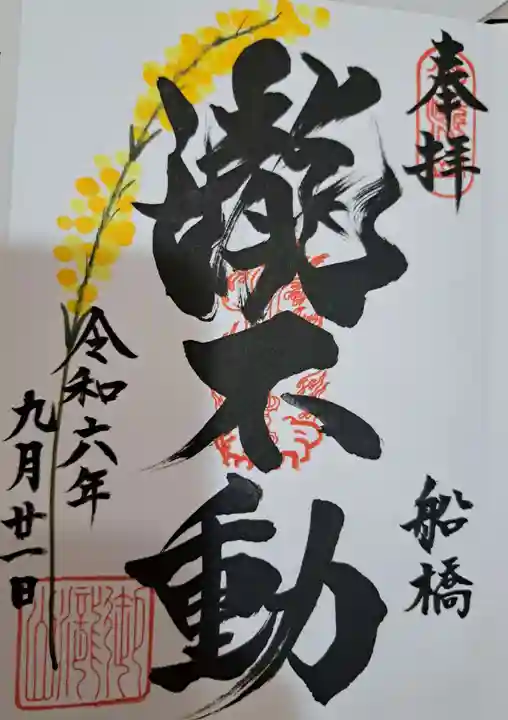 奉拝
船橋
瀧不動
令和六年
九月廿一日
御瀧山